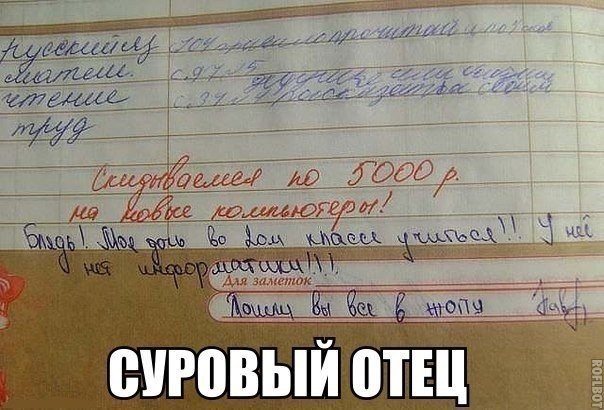 Русский яз 104 правило прочитать
матем. с. 97 № 5
чтение с. 34
труд
Скидываемся по 5000 р.
на новые компьютеры!
Блядь! Моя дочь во 2ом классе учиться!! У неё
нет информатики!!!
Для заметок
Пошли вы все в жопу
СУРОВЫЙ ОТЕЦ
ROFLBOT